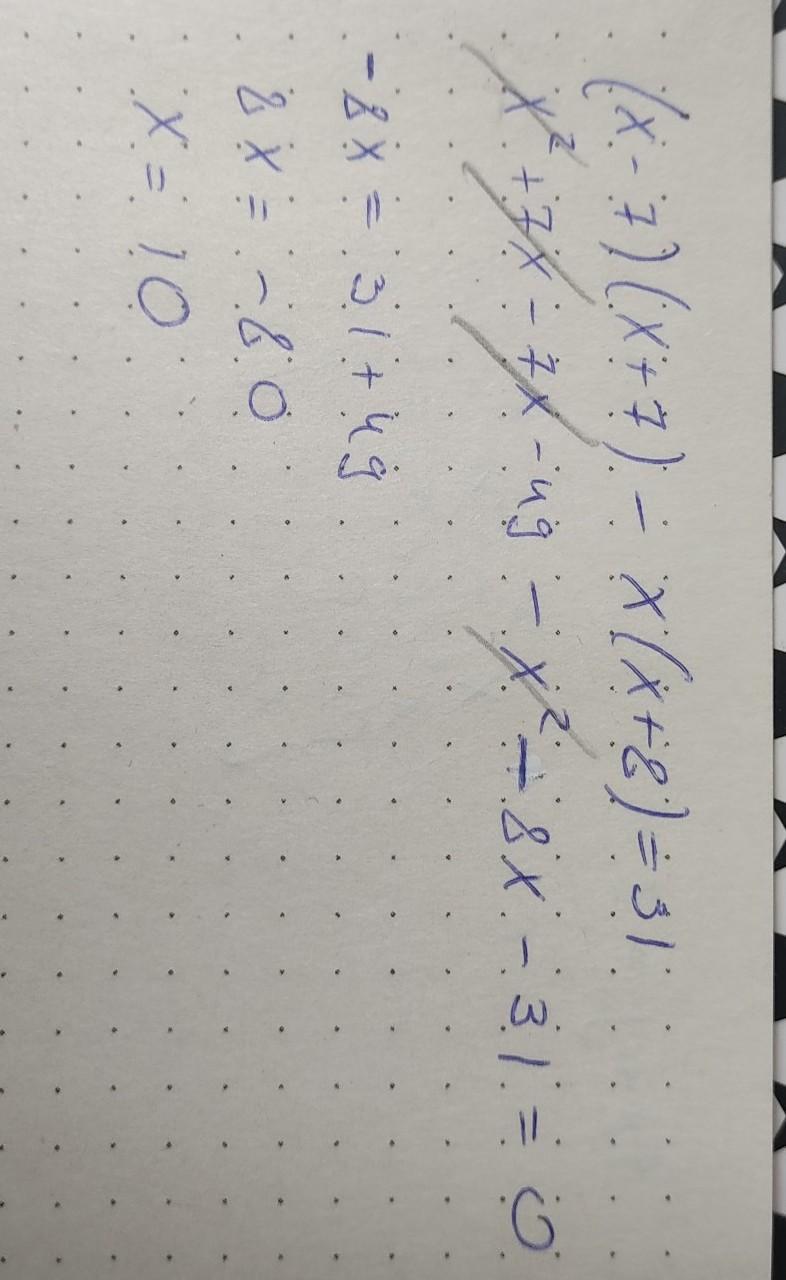 (x-7)(x+7) - x(x+8) = 31
x² + 7x - 7x - 49 - x² - 8x - 31 = 0
-8x = 31 + 49
8x = -80
x = 10